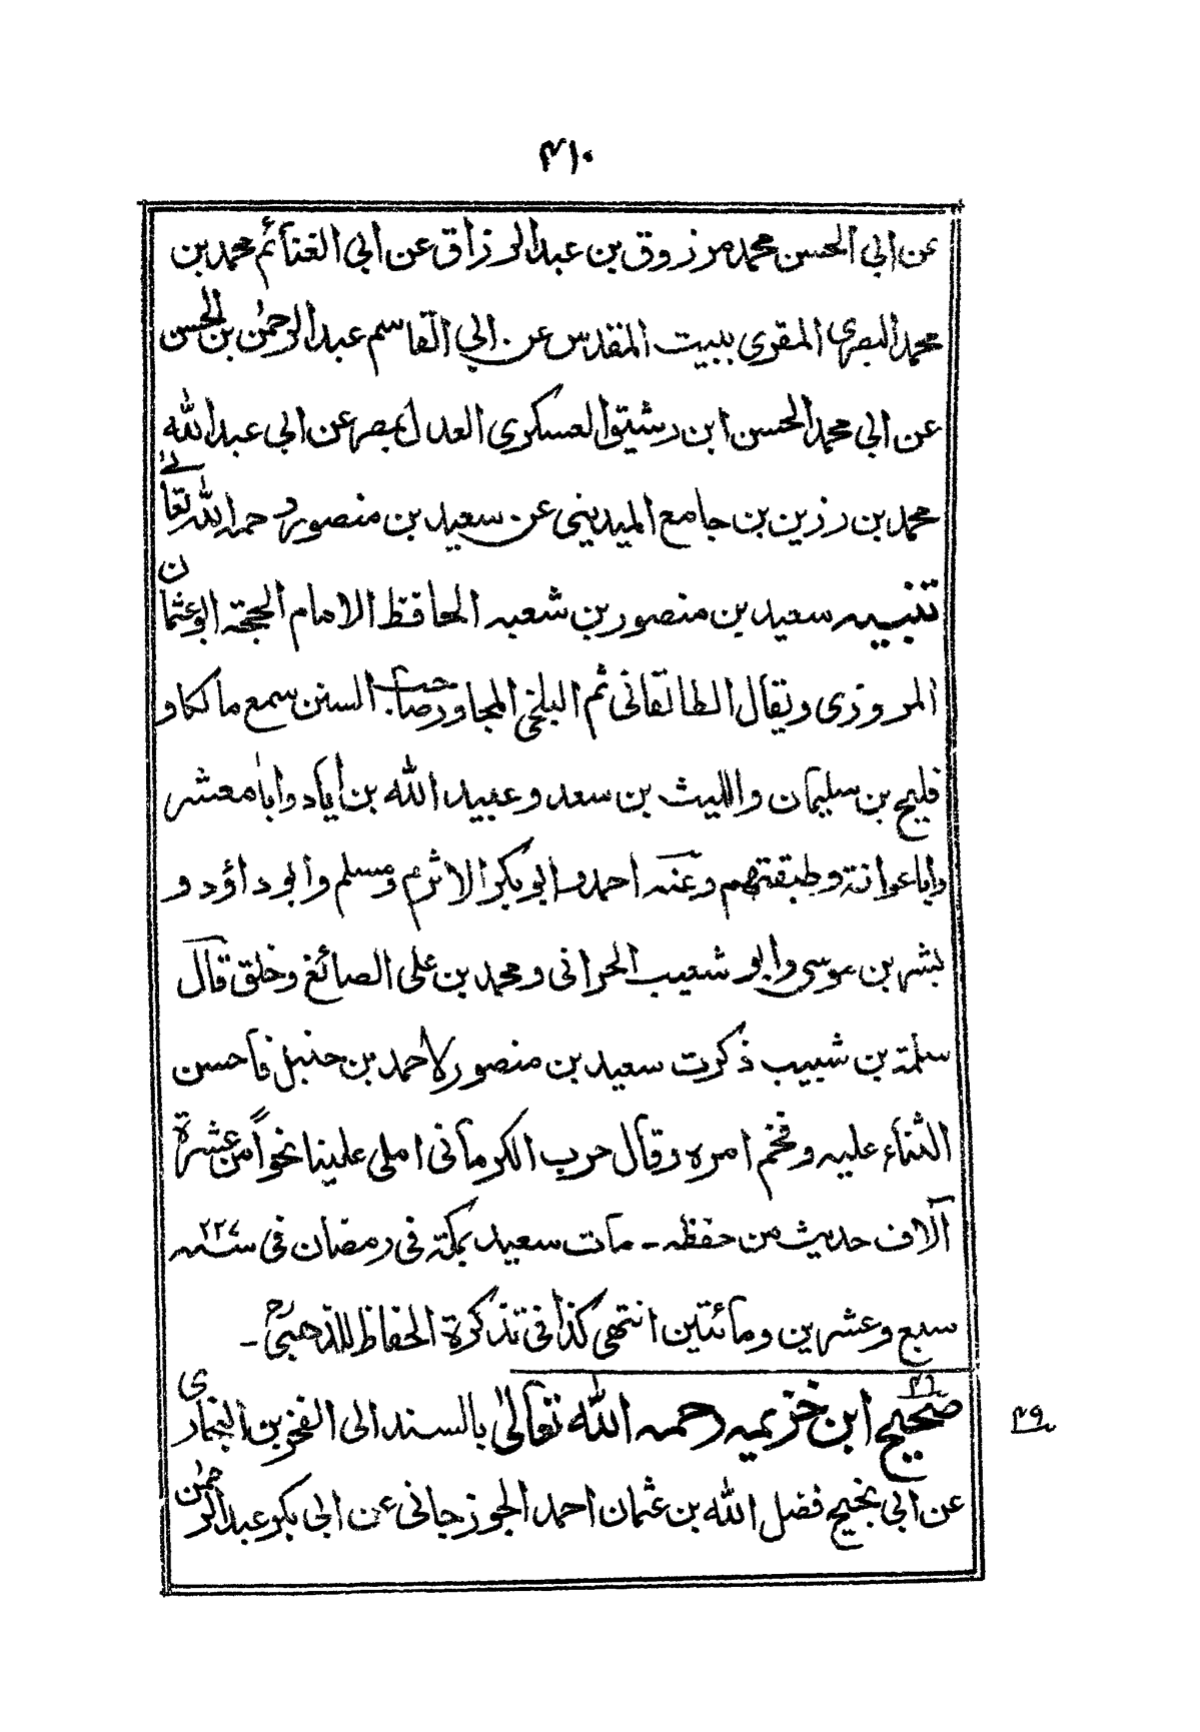 ٣١٠
عن ابي الحسن محمد مرزوق بن عبد الرزاق عن ابي الغنآئم محمد بن
محمد البصري المقري ببيت المقدس عن ابي القاسم عبد الرحمٰن بن الحسن
عن ابي محمد الحسن ابن رشيق العسكري العدل بمصر عن ابي عبد الله
محمد بن رزين بن جامع المديني عن سعيد بن منصور رحمه الله تعالٰى
تنبيه سعيد بن منصور بن شعبه الحافظ الامام الحجة ابو عثمان
المروزى ويقال الطالقانى ثم البلخي المجاور صاحب السنن سمع مالكا و
فليح بن سليمان والليث بن سعد وعبيد الله بن أياد وابا معشر
وابا عوانة وطبقتهم وعنه احمد وابو بكر الاثرم ومسلم وابو داؤد و
بشر بن موسى وابو شعيب الحرانى ومحمد بن على الصائغ وخلق قال
سلمة بن شبيب ذكرت سعيد بن منصور لاحمد بن حنبل فاحسن
الثناء عليه وفخم امره وقال حرب الكرمانى املى علينا نحواً من عشرة
آلاف حديث من حفظه ـ مات سعيد بمكة فى رمضان فى سنه ٢٢٧
سبع وعشرين ومائتين انتهى كذا فى تذكرة الحفاظ للذهبى رح ـ
صحيح ابن خزيمه رحمه الله تعالٰى بالسند الى الفخر بن البخارى
٢٩
عن ابي نجيح فضل الله بن عثمان احمد الجوزجانى عن ابى بكر عبد الرحمٰن